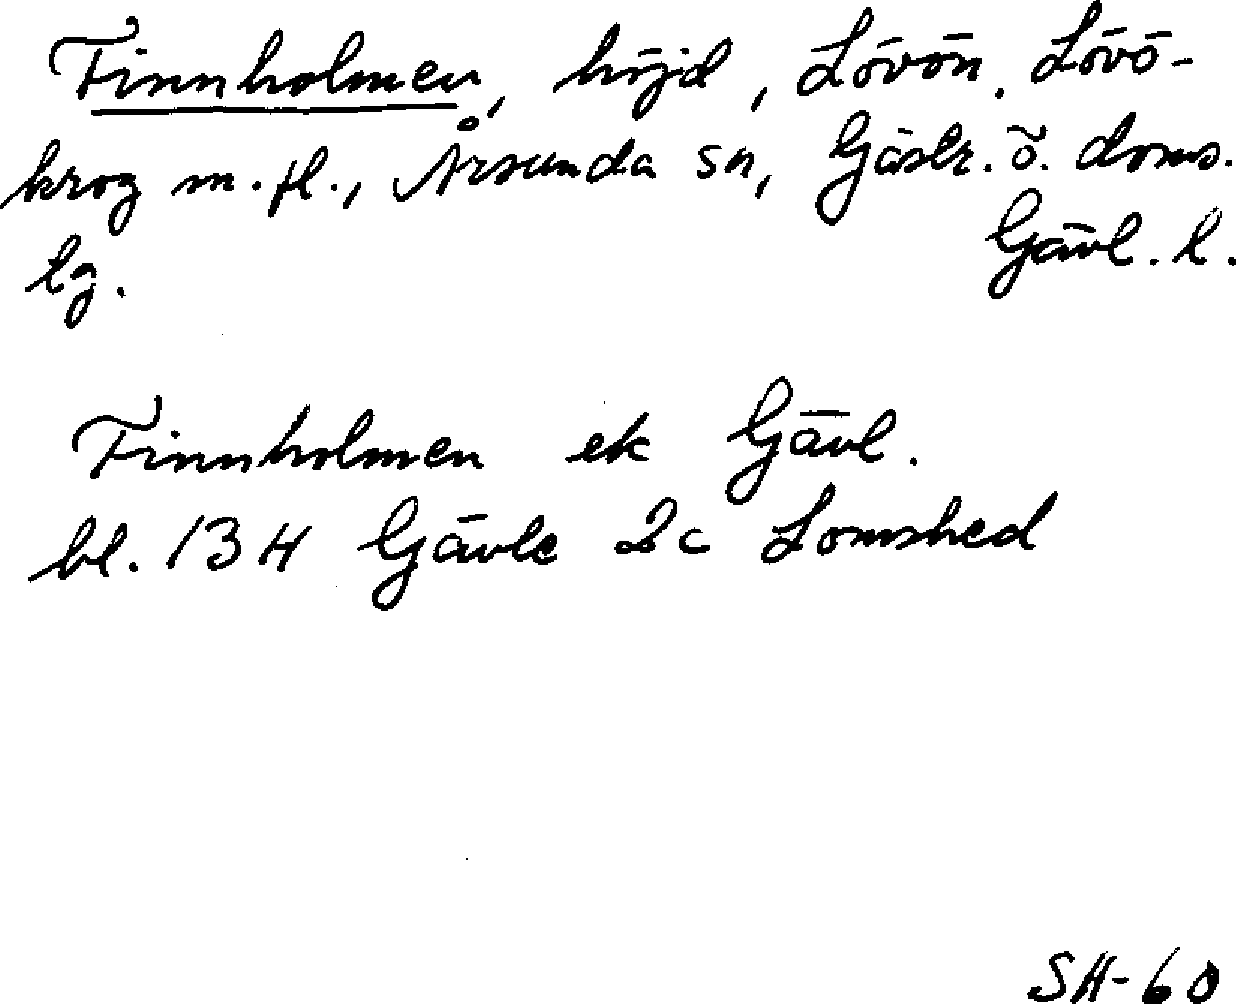 Finnholmen, höjd, Lövön, Lövö-
krog m.fl., Årsunda sn, Gästr. ö. doms.
lg. Gävl. l.
Finnholmen ek Gävl.
bl. 13H Gävle 2c Lomshed
SH-60